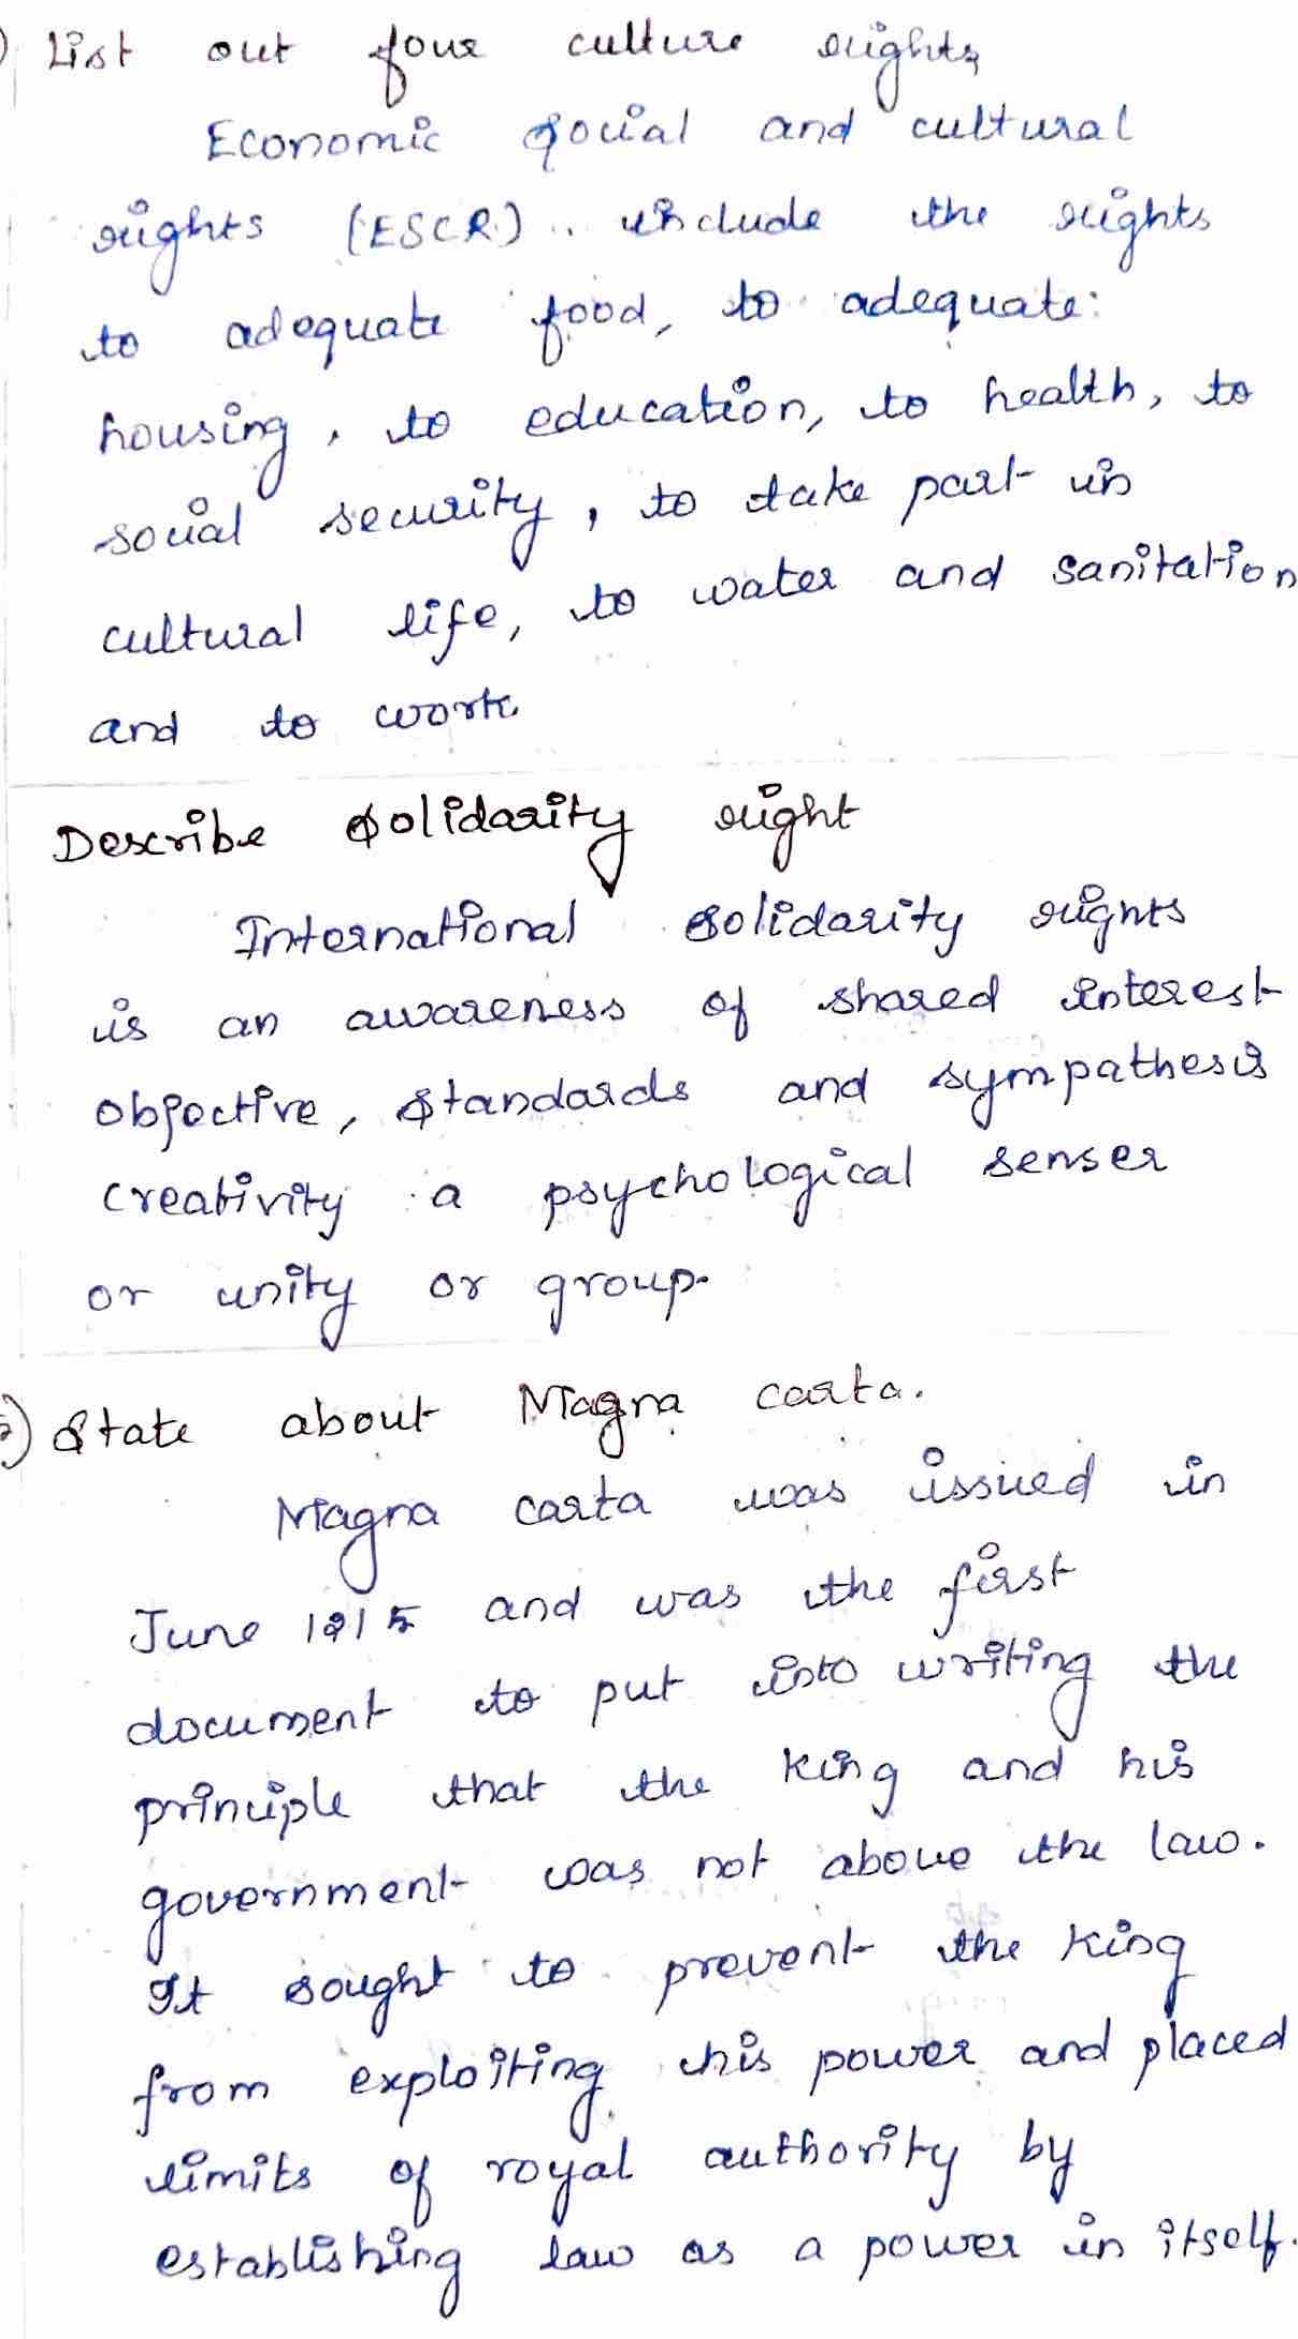 ) List out four culture rights
Economic social and cultural
rights (ESCR) .. include the rights
to adequate food, to adequate:
housing, to education, to health, to
social security, to take part in
cultural life, to water and sanitation
and to work
Describe solidarity right
International solidarity rights
is an awareness of shared interest
objective, standards and sympathesis
creativity a psychological senser
or unity or group.
) State about Magna carta.
Magna carta was issued in
June 1215 and was the first
document to put into writing the
principle that the king and his
government was not above the law.
It sought to prevent the king
from exploiting his power and placed
limits of royal authority by
establishing law as a power in itself.